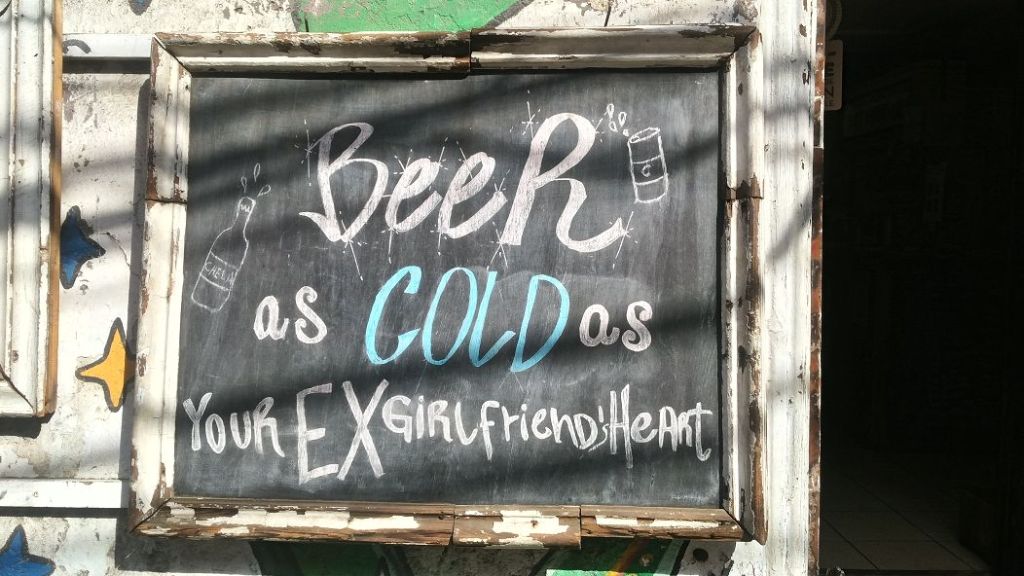 BeeR
as COLD as
YOUR EX GiRLfrienD's HeART